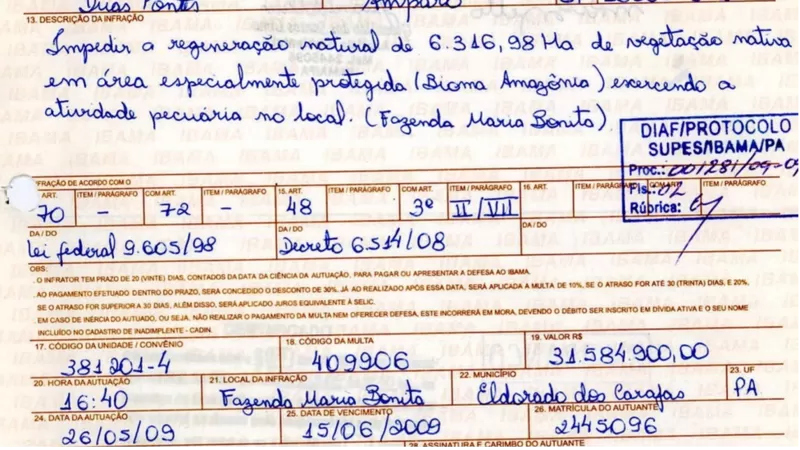 Dias Fontes
Amparo
13. DESCRIÇÃO DA INFRAÇÃO
Impedir a regeneração natural de 6.316,98 Ha de vegetação nativa
em área especialmente protegida (Bioma Amazônia) exercendo a
atividade pecuária no local. (Fazenda Maria Bonita)
DIAF/PROTOCOLO
SUPES/IBAMA/PA
Proc.: 001281/09-
Fls.: 02
Rúbrica:
INFRAÇÃO DE ACORDO COM O
ART. ITEM / PARÁGRAFO COM ART. ITEM / PARÁGRAFO 15. ART. ITEM / PARÁGRAFO COM ART. ITEM / PARÁGRAFO 16. ART. ITEM / PARÁGRAFO COM ART. ITEM / PARÁGRAFO
70 – 72 – 48 3º II / VII
DA / DO DA / DO DA / DO
Lei federal 9.605/98 Decreto 6.514/08
OBS:
. O INFRATOR TEM PRAZO DE 20 (VINTE) DIAS, CONTADOS DA DATA DA CIÊNCIA DA AUTUAÇÃO, PARA PAGAR OU APRESENTAR A DEFESA AO IBAMA.
. AO PAGAMENTO EFETUADO DENTRO DO PRAZO, SERÁ CONCEDIDO O DESCONTO DE 30%. JÁ AO REALIZADO APÓS ESSA DATA, SERÁ APLICADA A MULTA DE 10%, SE O ATRASO FOR ATÉ 30 (TRINTA) DIAS, E 20%,
SE O ATRASO FOR SUPERIOR A 30 DIAS, ALÉM DISSO, SERÁ APLICADO JUROS EQUIVALENTE À SELIC.
. EM CASO DE INÉRCIA DO AUTUADO, OU SEJA, NÃO REALIZAR O PAGAMENTO DA MULTA NEM OFERECER DEFESA, ESTE INCORRERÁ EM MORA, DEVENDO O DÉBITO SER INSCRITO EM DÍVIDA ATIVA E O SEU NOME
INCLUÍDO NO CADASTRO DE INADIMPLENTE - CADIN.
17. CÓDIGO DA UNIDADE / CONVÊNIO 18. CÓDIGO DA MULTA 19. VALOR R$
381201-4 409906 31.584.900,00
20. HORA DA AUTUAÇÃO 21. LOCAL DA INFRAÇÃO 22. MUNICÍPIO 23. UF
16:40 Fazenda Maria Bonita Eldorado dos Carajas PA
24. DATA DA AUTUAÇÃO 25. DATA DE VENCIMENTO 26. MATRÍCULA DO AUTUANTE
26/05/09 15/06/2009 2445096
28. ASSINATURA E CARIMBO DO AUTUANTE